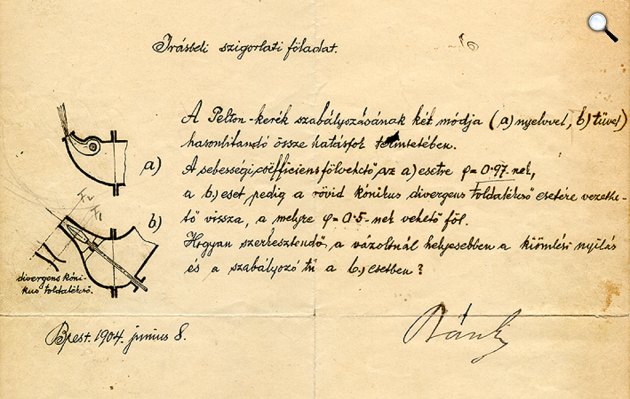 Írásbeli szigorlati föladat.
A Pelton-kerék szabályozásának két módja (a) nyelvvel, b) tűvel)
hasonlítandó össze hatásfok tekintetében.
A sebességi coëfficiens fölvehető az a) esetre φ = 0·97-nek,
a b) eset pedig a rövid kónikus divergens toldalékcső esetére vezethe-
tő vissza, a melyre φ = 0·5-nek vehető föl.
Hogyan szerkesztendő a vázoltnál helyesebben a kiömlési nyílás
és a szabályozó tű a b) esetben?
a)
b)
F₂
F₁
divergens kóni-
kus toldalékcső.
Bpest. 1904. június 8.
Bánki